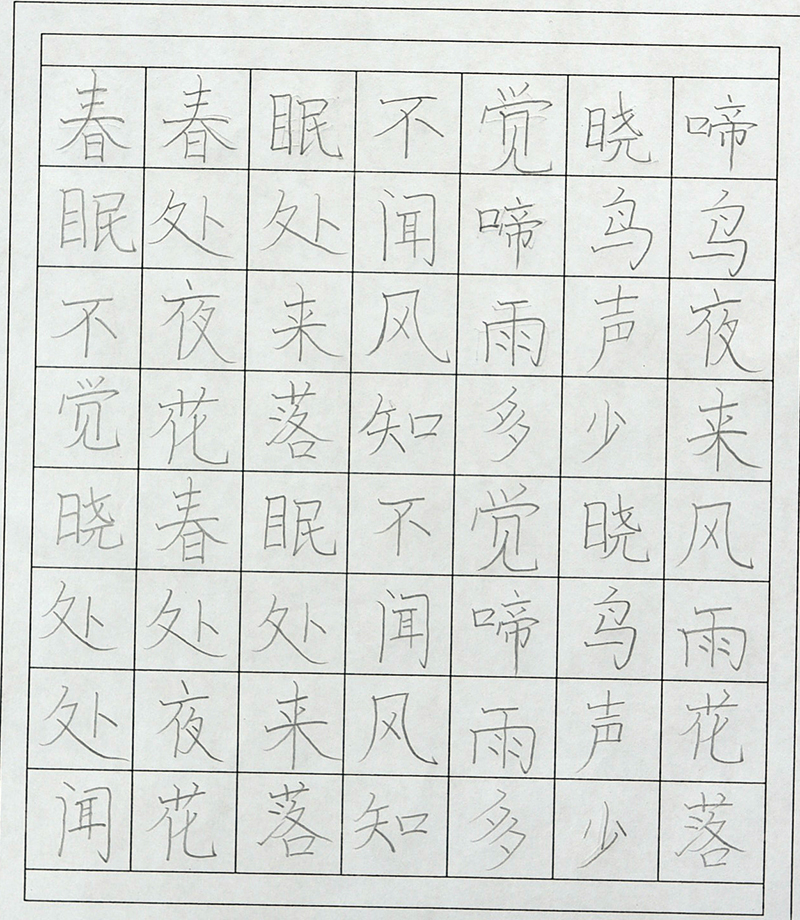 春春眠不觉晓啼
眠处处闻啼鸟鸟
不夜来风雨声夜
觉花落知多少来
晓春眠不觉晓风
处处处闻啼鸟雨
处夜来风雨声花
闻花落知多少落